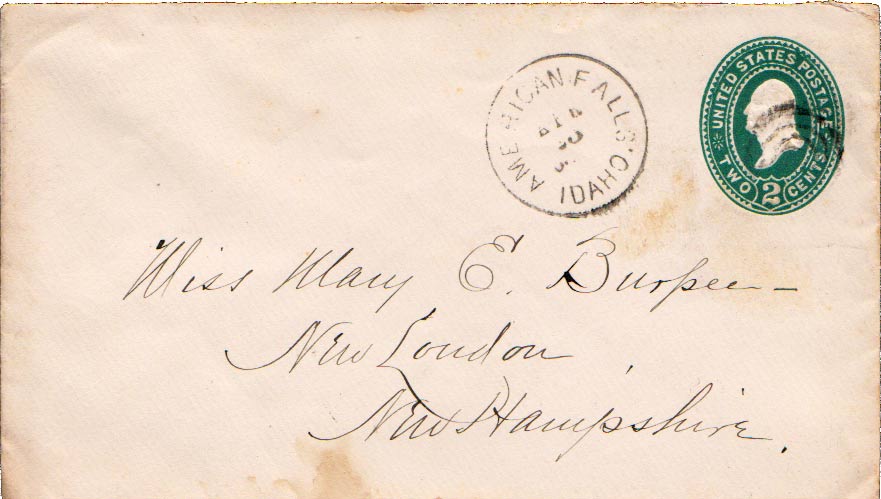 AMERICAN FALLS, IDAHO.
UNITED STATES POSTAGE
TWO 2 CENTS
Miss Mary E. Burpee
New London,
New Hampshire.